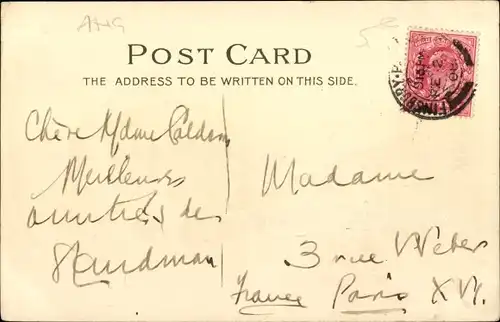 POST CARD
THE ADDRESS TO BE WRITTEN ON THIS SIDE.
Chère Mdme
Meilleures
amitiés de
Madame
3 rue Weber
France Paris XVI.